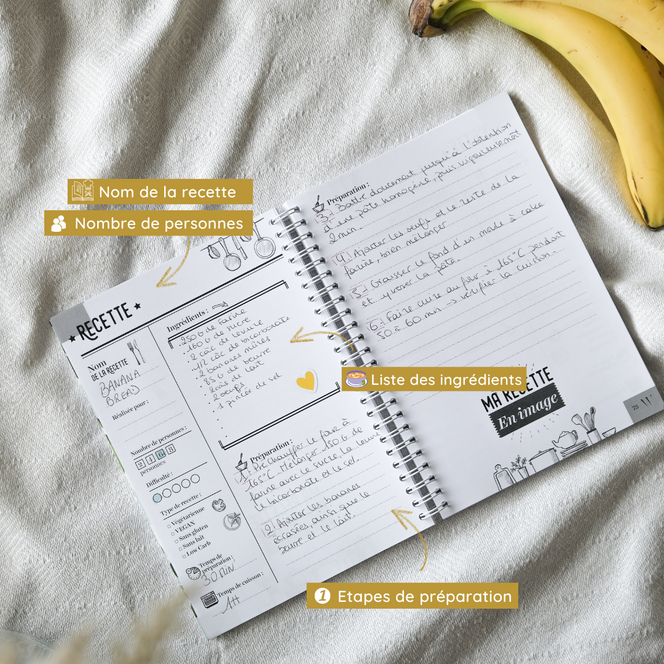 Nom de la recette
Nombre de personnes
RECETTE
Nom
DE LA RECETTE
BANANA
BREAD
Réalisée pour :
Nombre de personnes :
personnes
Difficulté :
Type de recette :
Végétarienne
VEGAN
Sans gluten
Sans lait
Low Carb
Temps de
préparation :
30 MIN
Temps de cuisson :
1H
Ingrédients :
250 g de farine
160 g de sucre
2 càc de levure
1/2 càc de bicarbonate
2 bananes mûres
85 g de beurre
de lait
2 oeufs
1 pincée de sel
Liste des ingrédients
Préparation :
1) Préchauffer le four à
165°C. Mélanger 150 g de
farine avec le sucre, la levure
le bicarbonate et le sel.
2) Ajouter les bananes
écrasées ainsi que le
beurre et le lait
Etapes de préparation
1
Préparation :
3) Battre doucement jusqu'à l'obtention
d'une pâte homogène, puis vigoureusement
2 min.
4) Ajouter les oeufs et le reste de la
farine, bien mélanger
5) Graisser le fond d'un moule à cake
et verser la pâte.
6) Faire cuire au four à 165°C pendant
50 à 60 min → vérifier la cuisson.
MA RECETTE
En image